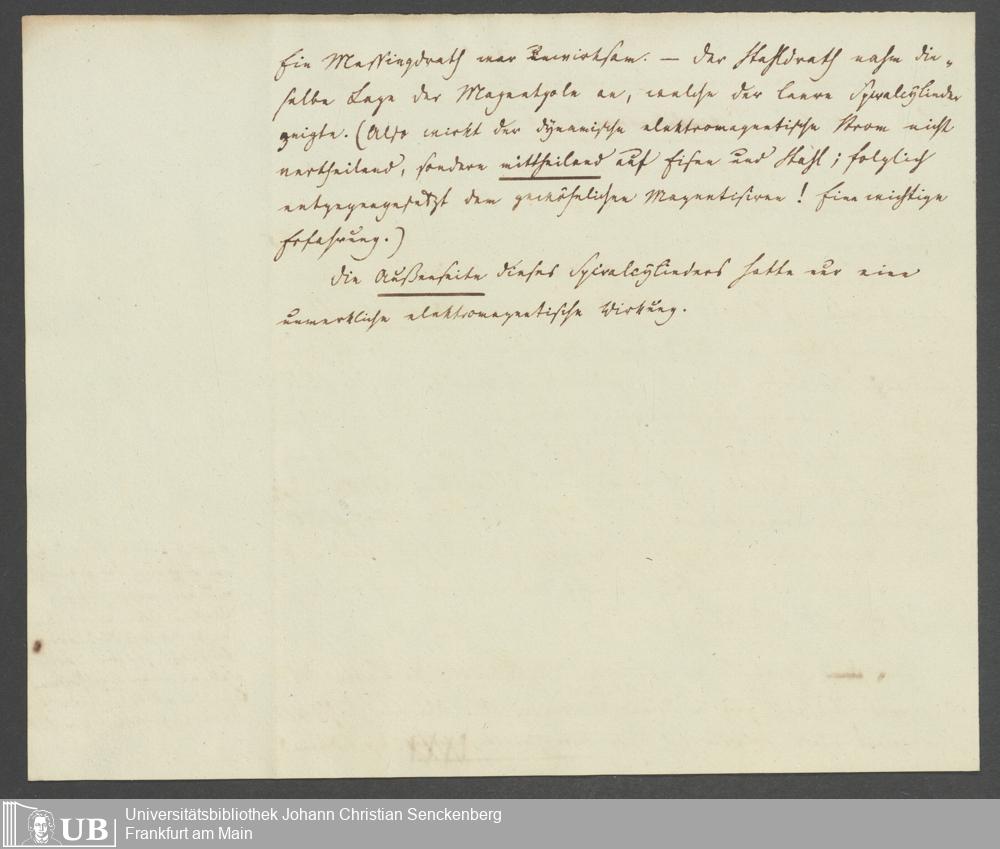 Ein Messingdrath war unwirksam. — Der Stahldrath nahm die-
selbe Lage der Magnetpole an, welche der leere Spiralcylinder
zeigte. (Also wirkt der dÿnamische elektromagnetische Strom nicht
vertheilend, sondern mittheilend auf Eisen und Stahl; folglich
entgegengesetzt dem gewöhnlichen Magnetisiren! Eine wichtige
Erfahrung.)
Die Außenseite dieses Spiralcÿlinders hatte nur eine
unmerkliche elektromagnetische Wirkung.
UB
Universitätsbibliothek Johann Christian Senckenberg
Frankfurt am Main